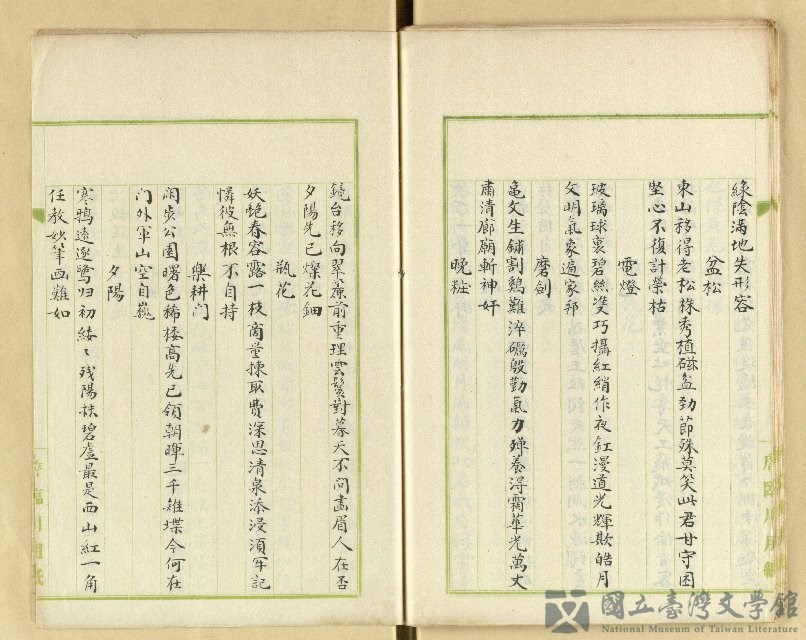 綠陰滿地失形容
盆松
東山移得老松株秀植磁盆勁節殊莫笑此君甘守困
堅心不復計榮枯
電燈
玻璃球裏碧絲雙巧攝紅綃作夜釭漫道光輝欺皓月
文明氣象遍家邦
磨劍
龜文生鏽割鷄難淬礪殷勤氣力殫養得霜華光萬丈
肅清廊廟斬神奸
晚粧
鏡台移向翠簾前重理雲鬟對暮天不問畵眉人在否
夕陽先已燦花鈿
瓶花
妖艶春容露一枝商量揀取費深思清泉添浸須牢記
憐彼無根不自持
樂耕門
闲步公園曙色稀楼高先已領朝暉三千雉堞今何在
門外軍山空自巍
夕陽
寒鴉遠逐鷺归初緩〻残陽袜碧虛最是西山紅一角
任教妙筆画難如
國立臺灣文學館
National Museum of Taiwan Literature